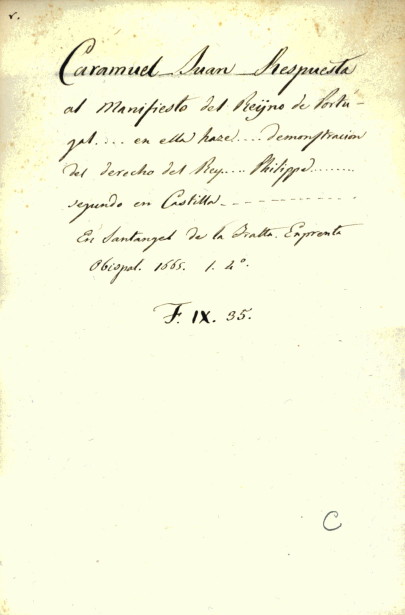 v.
Caramuel Juan Respuesta
al Manifiesto del Reÿno de Portu-
gal.... en ella haze.... demonstracion
del derecho del Rey.... Philippe........
segundo en Castilla - - - - - - - - - - -
En Santangel de la Fratta. Enprenta
Obispal. 1665. 1. 4°.
F. IX. 35.
C